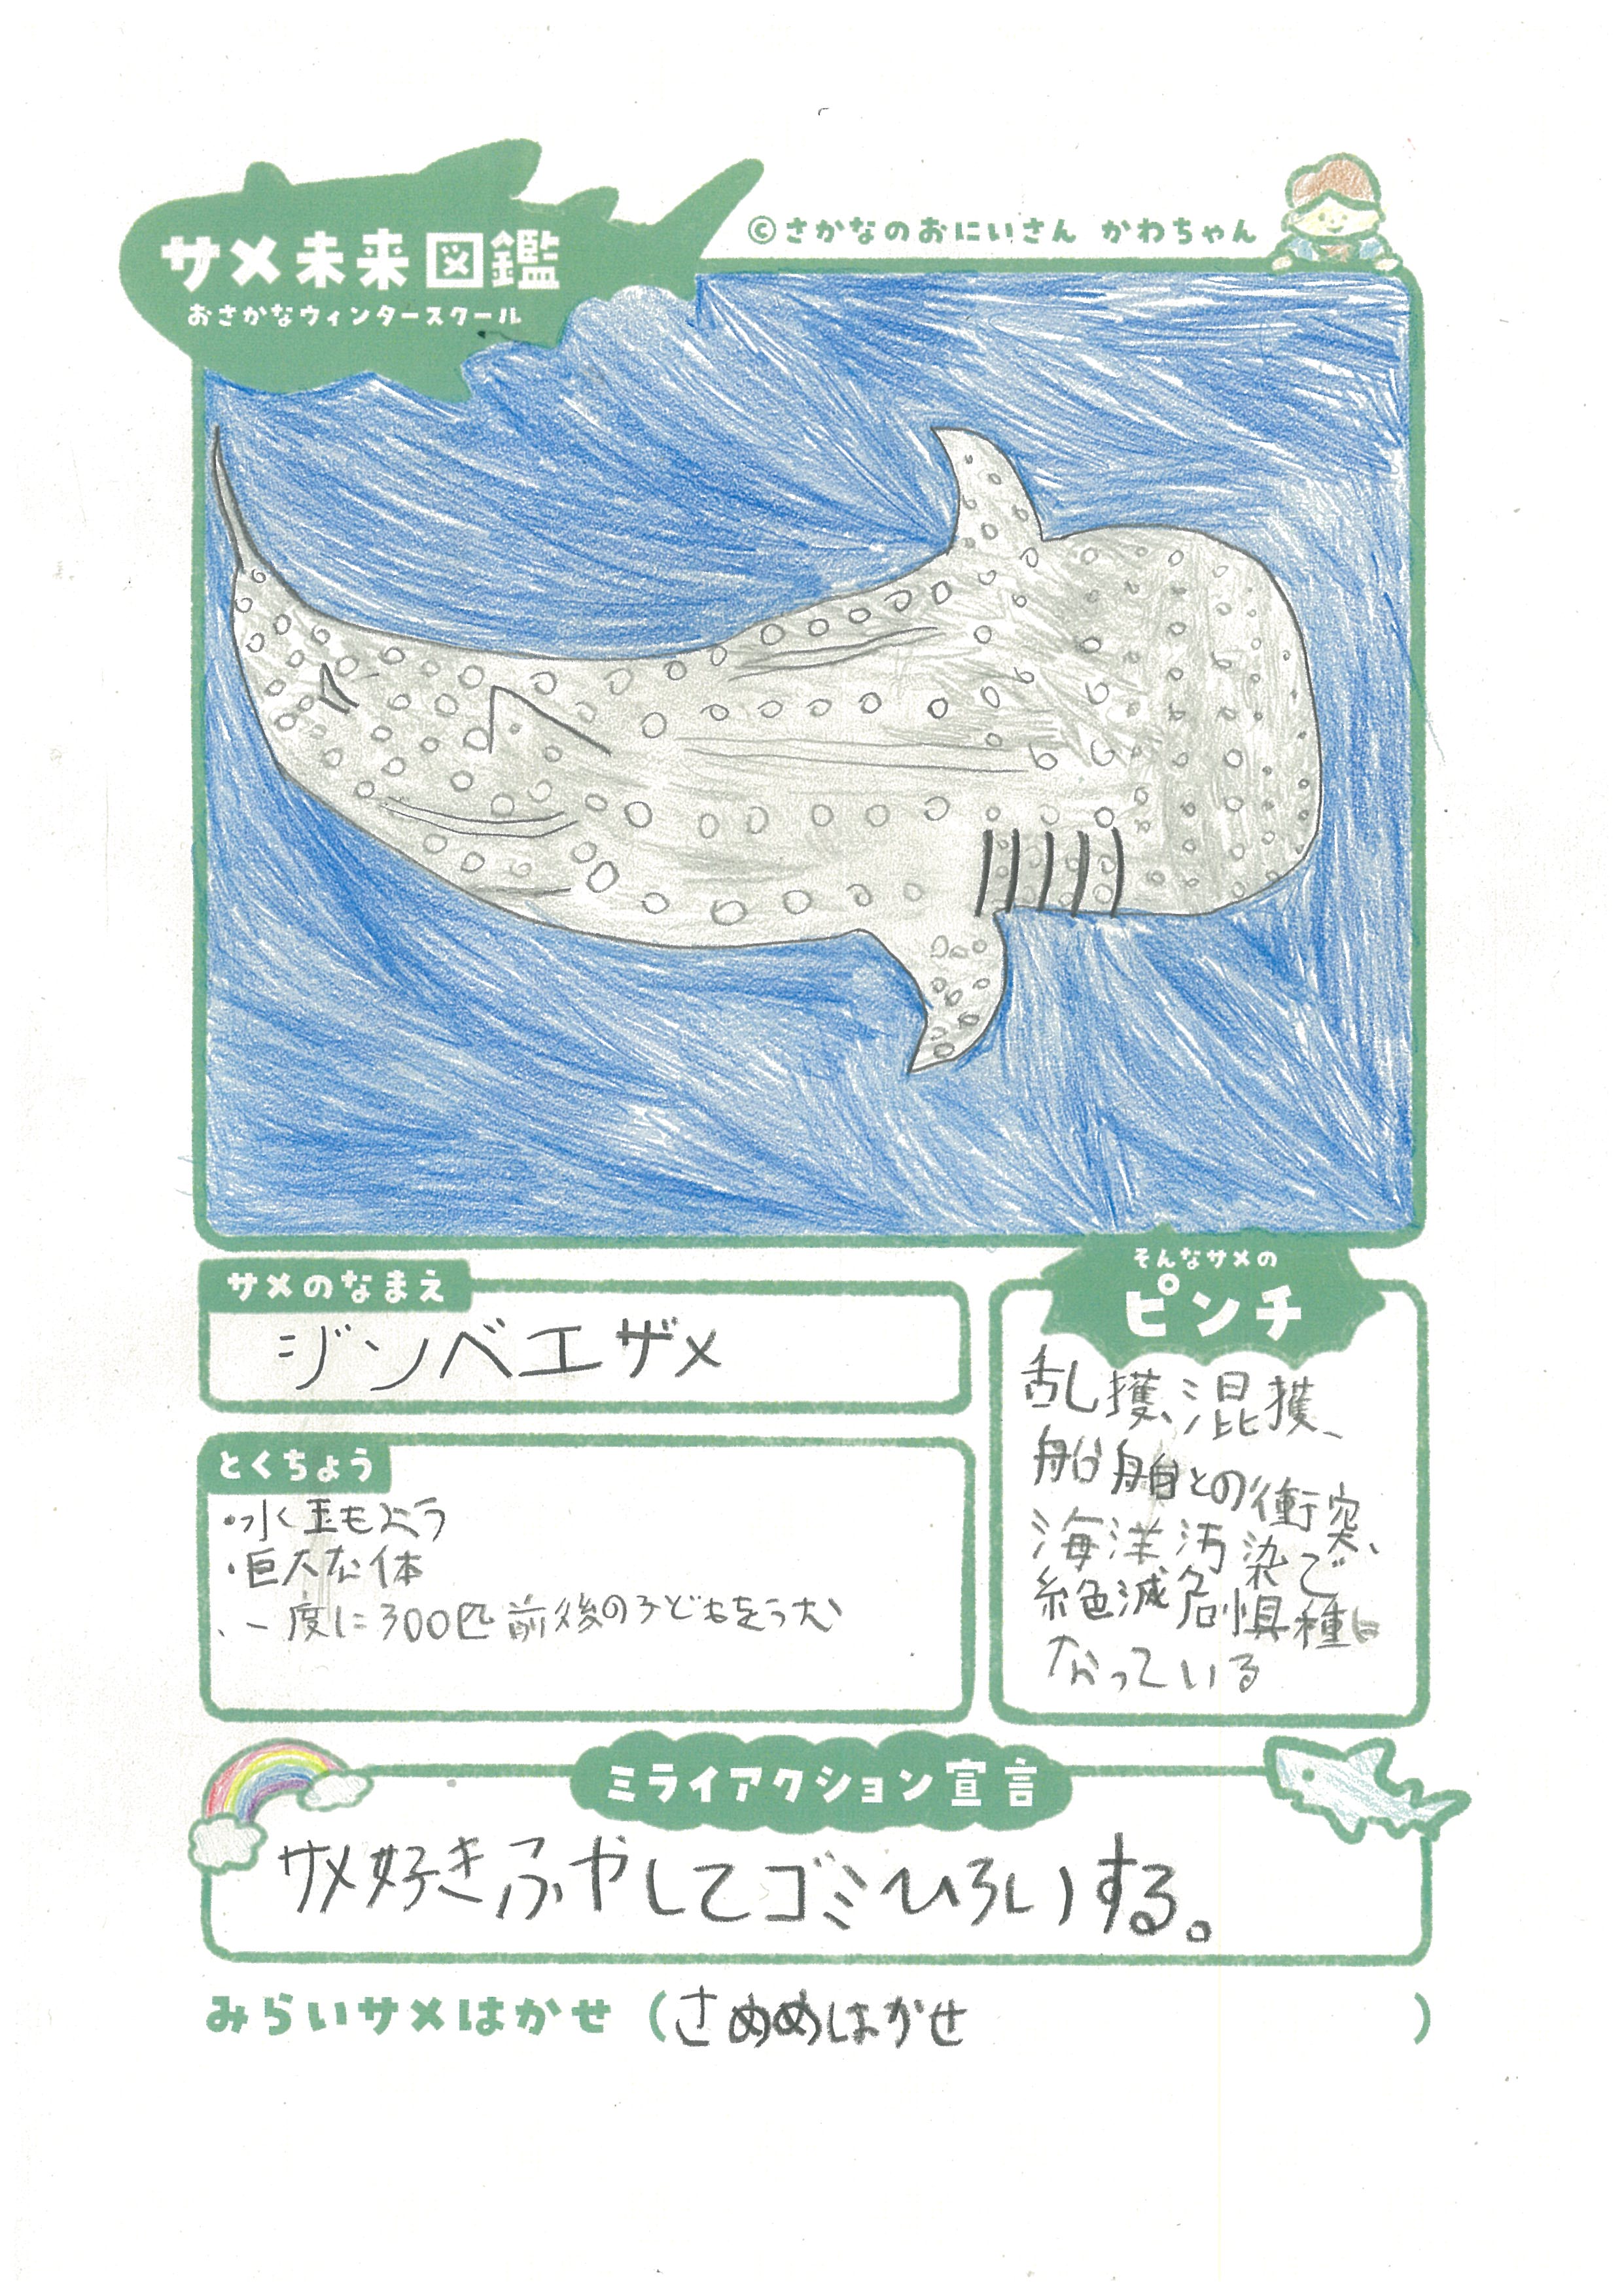 ©さかなのおにいさん かわちゃん
サメ未来図鑑
おさかなウィンタースクール
サメのなまえ
ジンベエザメ
とくちょう
・水玉もよう
・巨大な体
・一度に300匹前後の子どもをうむ
そんなサメの
ピンチ
乱獲、混獲、
船舶との衝突、
海洋汚染で
絶滅危惧種に
なっている
ミライアクション宣言
サメ好きふやしてゴミひろいする。
みらいサメはかせ（さめめはかせ）